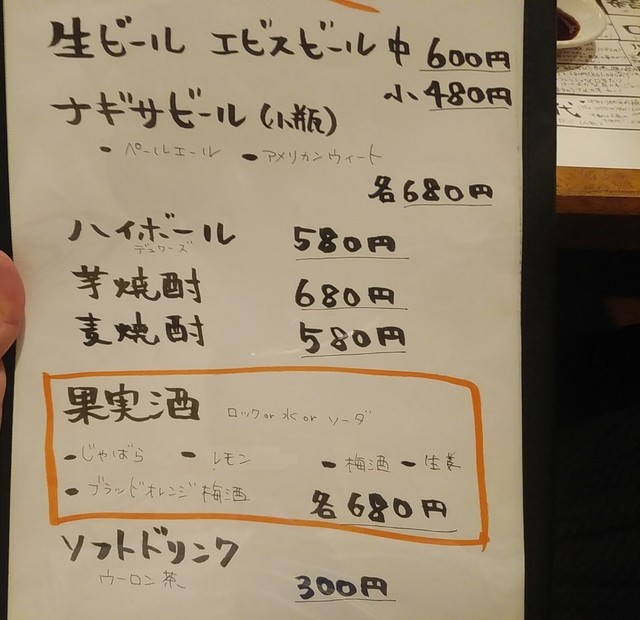 生ビール エビスビール 中 600円
小 480円
ナギサビール(小瓶)
・ペールエール ・アメリカンウィート
各680円
ハイボール 580円
デュワーズ
芋焼酎 680円
麦焼酎 580円
果実酒 ロック or 水 or ソーダ
・じゃばら ・レモン ・梅酒 ・生姜
・ブラッドオレンジ梅酒 各680円
ソフトドリンク
ウーロン茶 300円
代